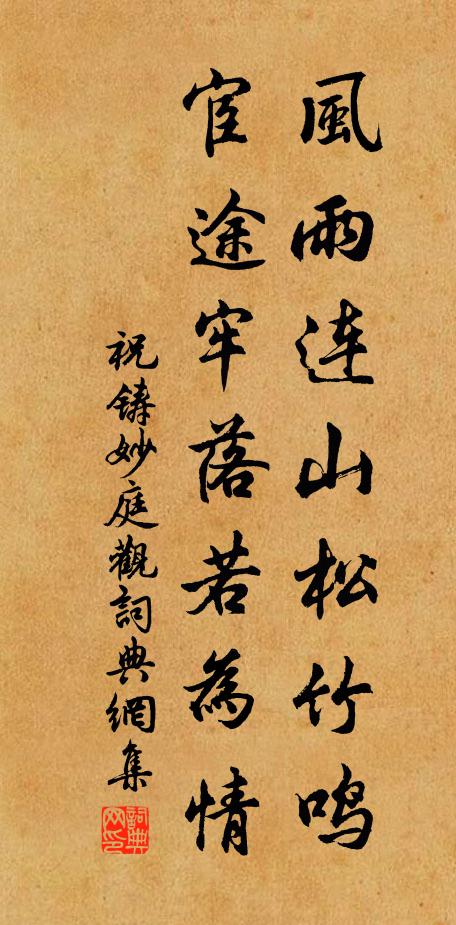 風雨連山松竹鸣
宦途牢落若為情
祝鑄妙庭觀詞典網集
詞典网印